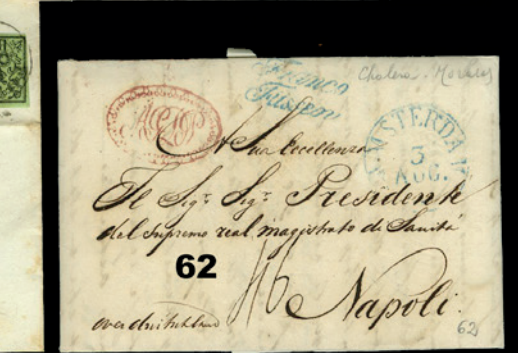 Franco
Füssen
Cholera
AMSTERDAM
3
AUG.
A Sua Eccellenza
Il Sigr. Sigr. Presidente
del Supremo real magistrato di Sanità
62
Napoli.
62